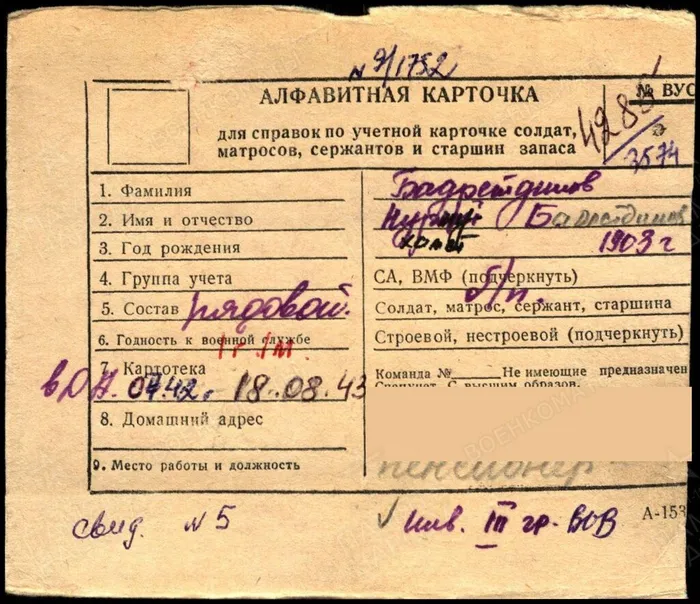 № 9/1752
АЛФАВИТНАЯ КАРТОЧКА
№ ВУС
для справок по учетной карточке солдат,
матросов, сержантов и старшин запаса
4285
3574
1. Фамилия Бадретдинов
2. Имя и отчество Бадретдинов
3. Год рождения 1903 г
4. Группа учета СА, ВМФ (подчеркнуть)
б/п.
5. Состав рядовой. Солдат, матрос, сержант, старшина
6. Годность к военной службе Строевой, нестроевой (подчеркнуть)
7. Картотека Команда № Не имеющие предназначен
в ДА. 07.42 г 18.08.43
8. Домашний адрес
9. Место работы и должность пенсионер
свид. № 5 ✓ инв. III гр. ВОВ А-153